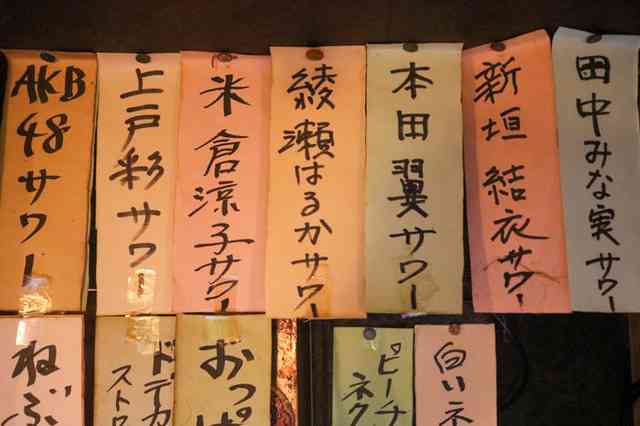 AKB48サワー
上戸彩サワー
米倉涼子サワー
綾瀬はるかサワー
本田翼サワー
新垣結衣サワー
田中みな実サワー
ねぶ
ドデカ
ストロ
おっぱ
ピーチ
ネク
白いネ